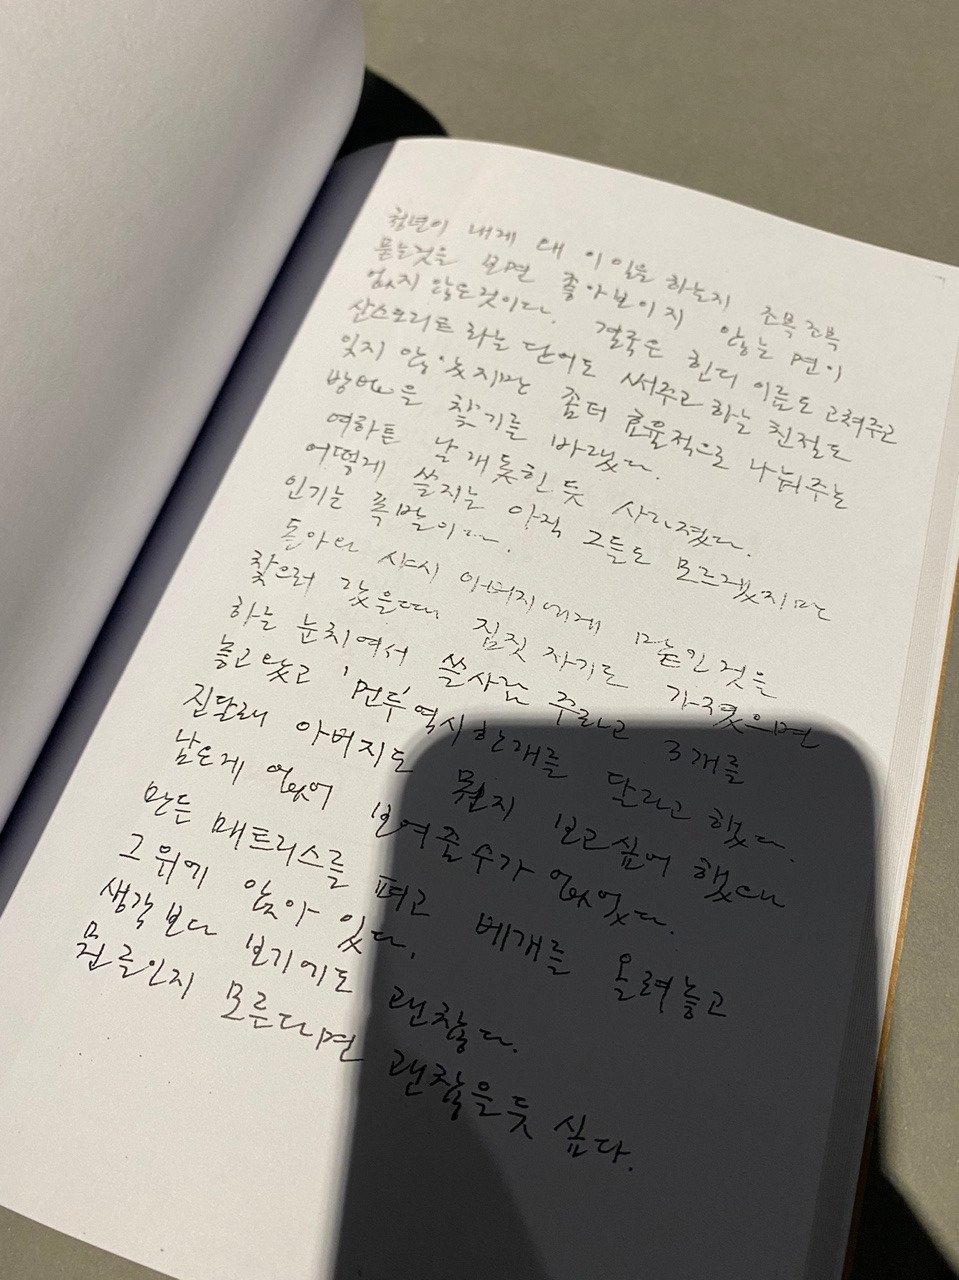 청년이 내게 왜 이 일을 하는지 조목조목
묻는것을 보면 좋아보이지 않는 면이
없지 않은것이다. 결국은 힌디 이름도 고쳐주고
산스크리트 라는 단어도 써주고 하는 친절도
잊지 않았지만 좀더 효율적으로 나눠주는
방법을 찾기를 바랬다.
여하튼 날개돋힌 듯 사라졌다.
어떻게 쓸지는 아직 그들도 모르겠지만
인기는 폭발이다.
돌아와 샤시 아버지에게 맡긴것을
찾으러 갔을때 짐짓 자기도 가졌으면
하는 눈치여서 쓸사람 주라고 3개를
놓고왔고 '먼투'역시 한개를 달라고 했다.
진달래 아버지도 뭔지 보고싶어 했으나
남은게 없어 보여줄수가 없었다.
만든 매트리스를 펴고 베개를 올려놓고
그 위에 앉아 있다.
생각보다 보기에도 괜찮다.
뭔글인지 모른다면 괜찮을듯 싶다.